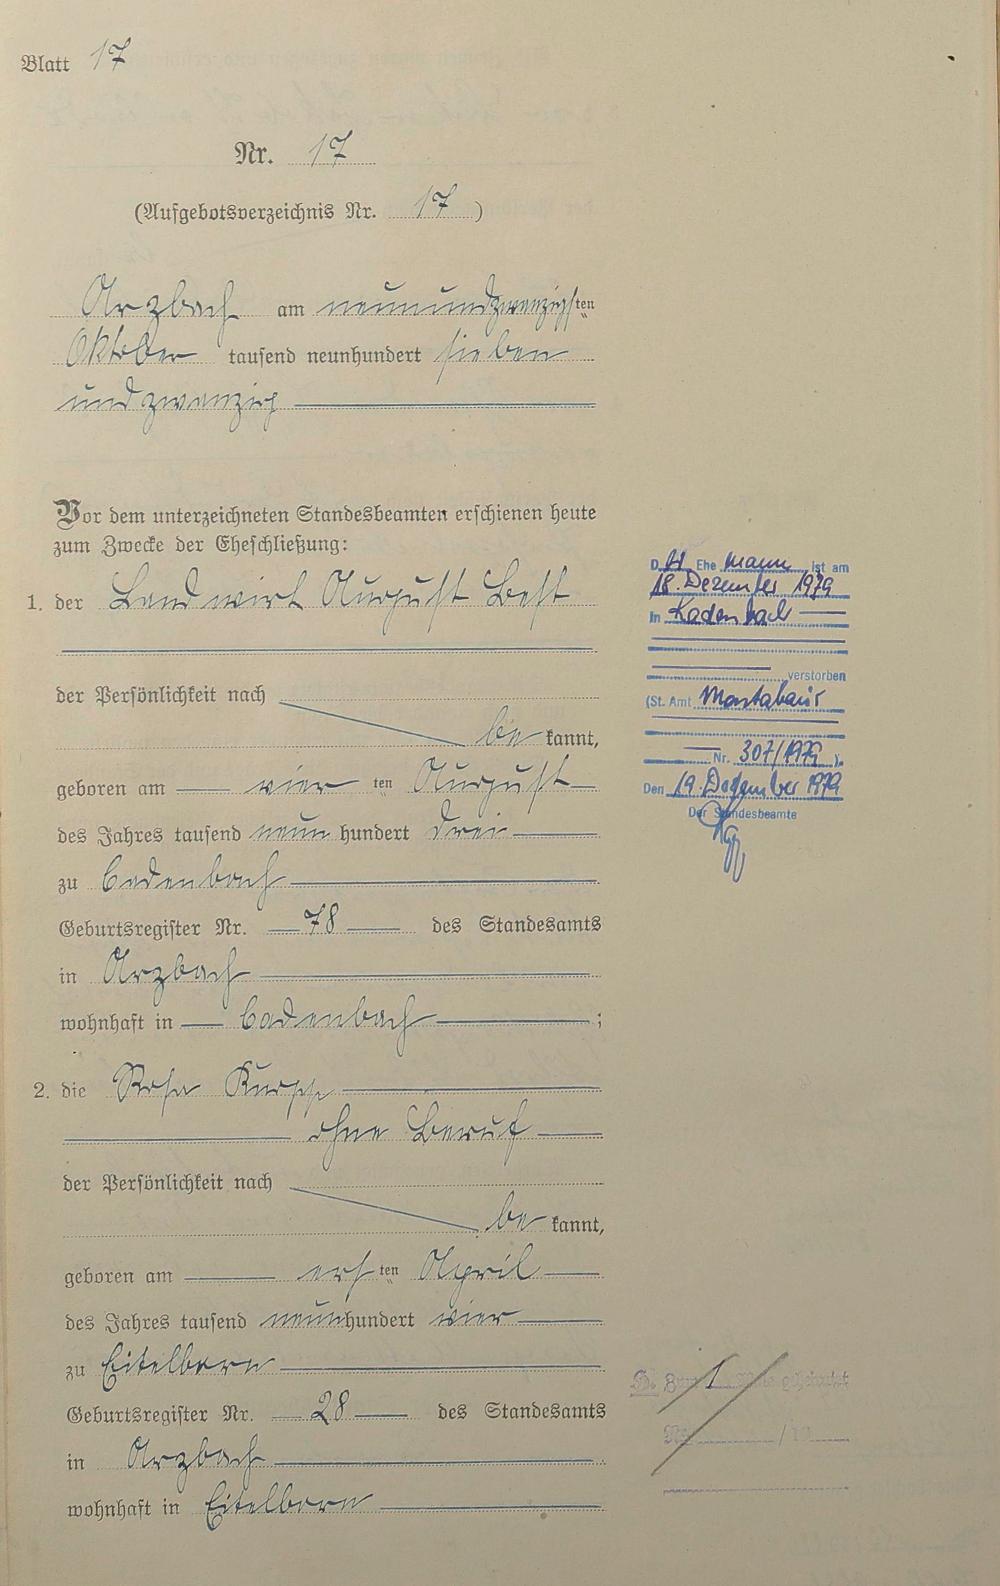 Blatt 17
Nr. 17
(Aufgebotsverzeichnis Nr. 17)
Arzbach am neunundzwanzigsten
Oktober tausend neunhundert sieben
undzwanzig
Vor dem unterzeichneten Standesbeamten erschienen heute
zum Zwecke der Eheschließung:
1. der Landwirt August Best
der Persönlichkeit nach
be kannt,
geboren am vier ten August
des Jahres tausend neun hundert drei
zu Cadenbach
Geburtsregister Nr. 78 des Standesamts
in Arzbach
wohnhaft in Cadenbach ;
2. die Rosa Knopp
ohne Beruf
der Persönlichkeit nach
be kannt,
geboren am ers ten April
des Jahres tausend neun hundert vier
zu Eitelborn
Geburtsregister Nr. 28 des Standesamts
in Arzbach
wohnhaft in Eitelborn
D er Ehe mann ist am
18. Dezember 1979
in Kadenbach
verstorben
(St. Amt Montabaur
Nr. 307/1979 ).
Den 19. Dezember 1979
Der Standesbeamte
1
Nr. /19